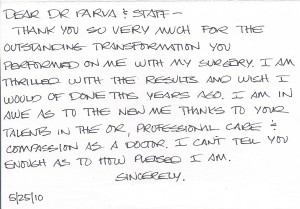 DEAR DR FARVA & STAFF -
THANK YOU SO VERY MUCH FOR THE
OUTSTANDING TRANSFORMATION YOU
PERFORMED ON ME WITH MY SURGERY. I AM
THRILLED WITH THE RESULTS AND WISH I
WOULD OF DONE THIS YEARS AGO. I AM IN
AWE AS TO THE NEW ME THANKS TO YOUR
TALENTS IN THE OR, PROFESSIONAL CARE &
COMPASSION AS A DOCTOR. I CAN'T TELL YOU
ENOUGH AS TO HOW PLEASED I AM.
SINCERELY.
5/25/10